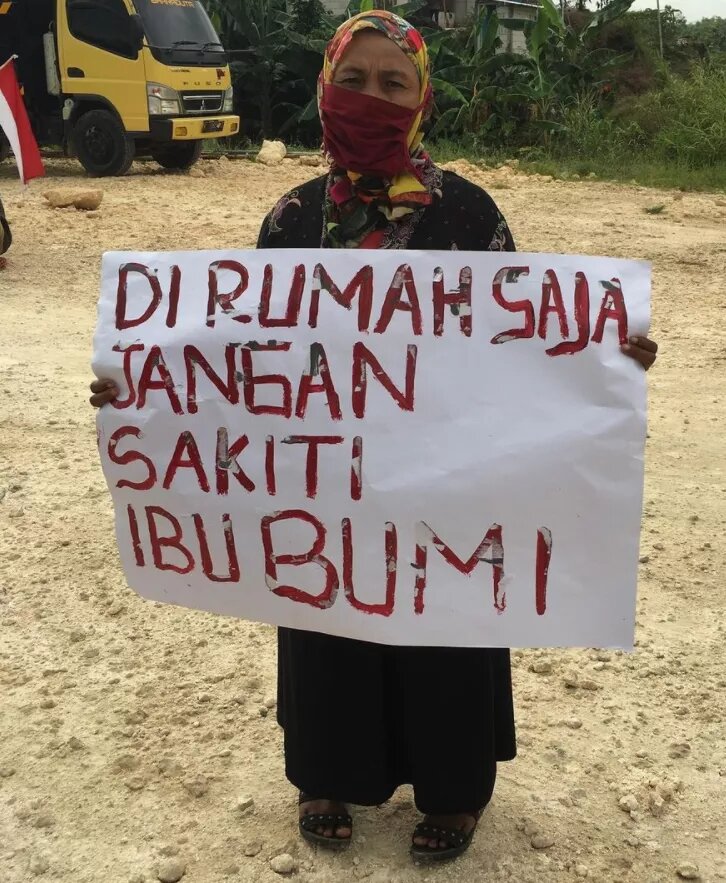 DI RUMAH SAJA
JANGAN
SAKITI
IBU BUMI
FUSO